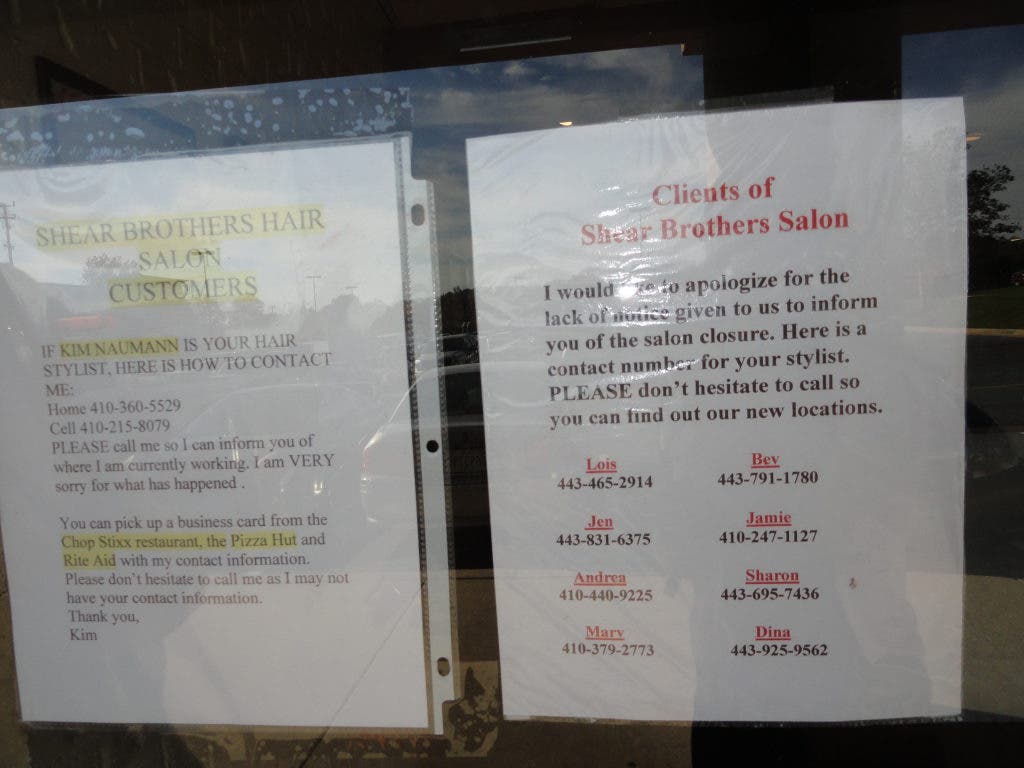 SHEAR BROTHERS HAIR
SALON
CUSTOMERS
IF KIM NAUMANN IS YOUR HAIR
STYLIST, HERE IS HOW TO CONTACT
ME:
Home 410-360-5529
Cell 410-215-8079
PLEASE call me so I can inform you of
where I am currently working. I am VERY
sorry for what has happened .
You can pick up a business card from the
Chop Stixx restaurant, the Pizza Hut and
Rite Aid with my contact information.
Please don't hesitate to call me as I may not
have your contact information.
Thank you,
Kim
Clients of
Shear Brothers Salon
I would like to apologize for the
lack of notice given to us to inform
you of the salon closure. Here is a
contact number for your stylist.
PLEASE don't hesitate to call so
you can find out our new locations.
Lois Bev
443-465-2914 443-791-1780
Jen Jamie
443-831-6375 410-247-1127
Andrea Sharon
410-440-9225 443-695-7436
Mary Dina
410-379-2773 443-925-9562